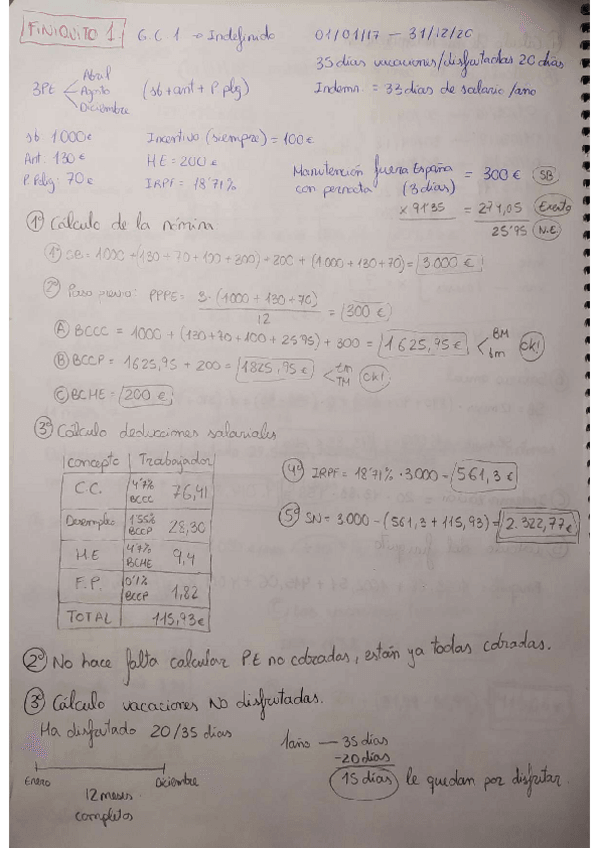 FINIQUITO 1. G.C. 1 → Indefinido 01/01/17 — 31/12/20
35 dias vacaciones/disfrutadas 20 dias
3PE Abril Agosto Diciembre (sb + ant + P. plig) Indemn. = 33 dias de salario/año
sb 1000€ Incentivo (siempre) = 100€
Ant. 130€ HE = 200€
P. Plig: 70€ IRPF = 18'71%
Manutención fuera España = 300€ SB
con pernocta (3 dias)
x 91'35 = 274,05 Exento
25'95 N.E.
1º Cálculo de la nómina
1º SB = 1000 + (130 + 70 + 100 + 300) + 200 + (1.000 + 130 + 70) = 3.000€
2º Paso previo: PPPE = 3 · (1000 + 130 + 70) / 12 = 300€
A BCCC = 1000 + (130 + 70 + 100 + 25'95) + 300 = 1625,95€ BM bm Ok!
B BCCP = 1625,95 + 200 = 1825,95€ tm TM Ok!
C BCHE = 200€
3º Cálculo deducciones salariales
concepto Trabajador
C.C. 4'7% BCCC 76,41
Desempleo 1'55% BCCP 28,30
H.E 4'7% BCHE 9,4
F.P. 0'1% BCCP 1,82
TOTAL 115,93€
4º IRPF = 18'71% · 3.000 = 561,3€
5º SN = 3.000 - (561,3 + 115,93) = 2.322,77€
2º No hace falta calcular PE no cobradas, están ya todas cobradas.
3º Cálculo vacaciones NO disfrutadas.
Ha disfrutado 20/35 dias
1año — 35 dias
-20 dias
15 dias le quedan por disfrutar.
Enero Diciembre
12 meses
completos